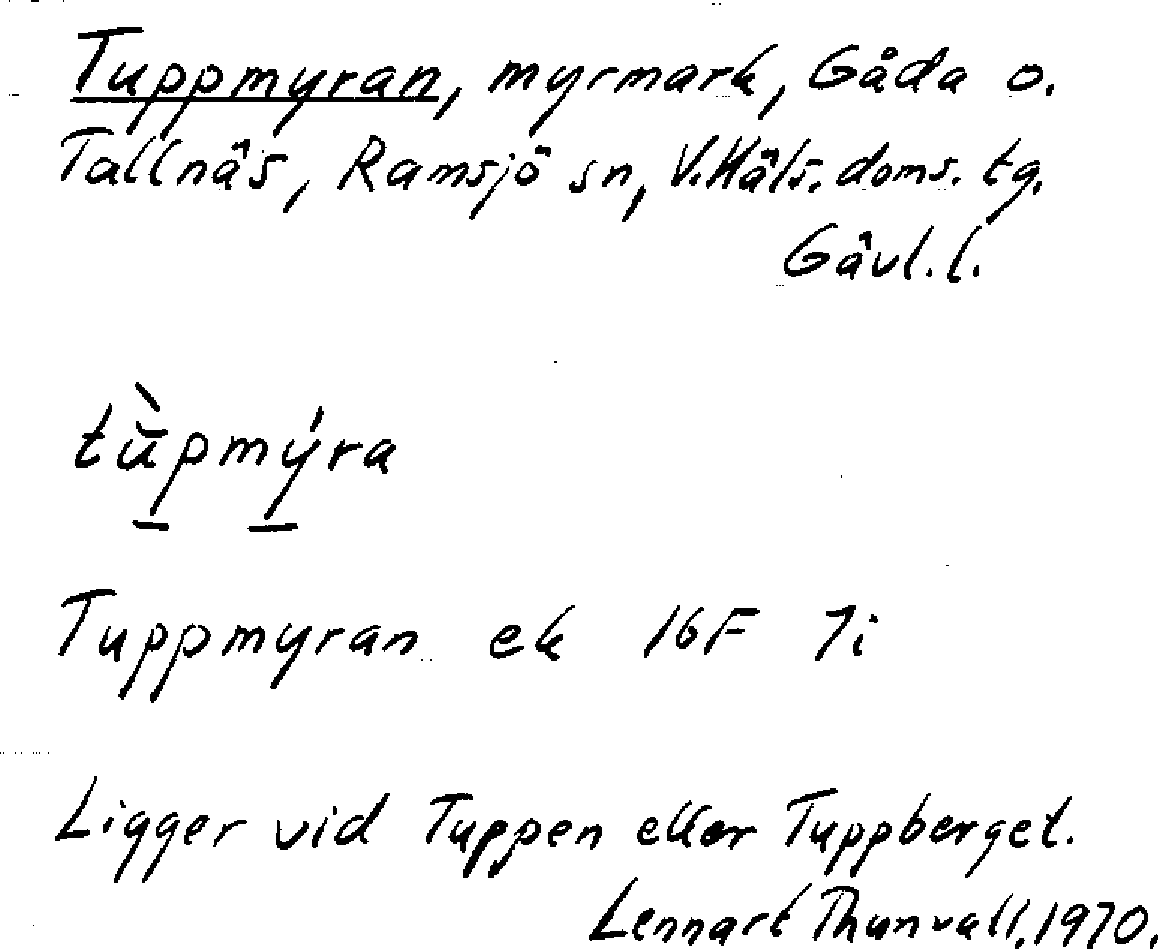 Tuppmyran, myrmark, Gåda o.
Tallnäs, Ramsjö sn, V.Häls. doms. tg.
Gävl. l.
tùpmýra
Tuppmyran ek 16F 7i
Ligger vid Tuppen eller Tuppberget.
Lennart Thunvall, 1970.